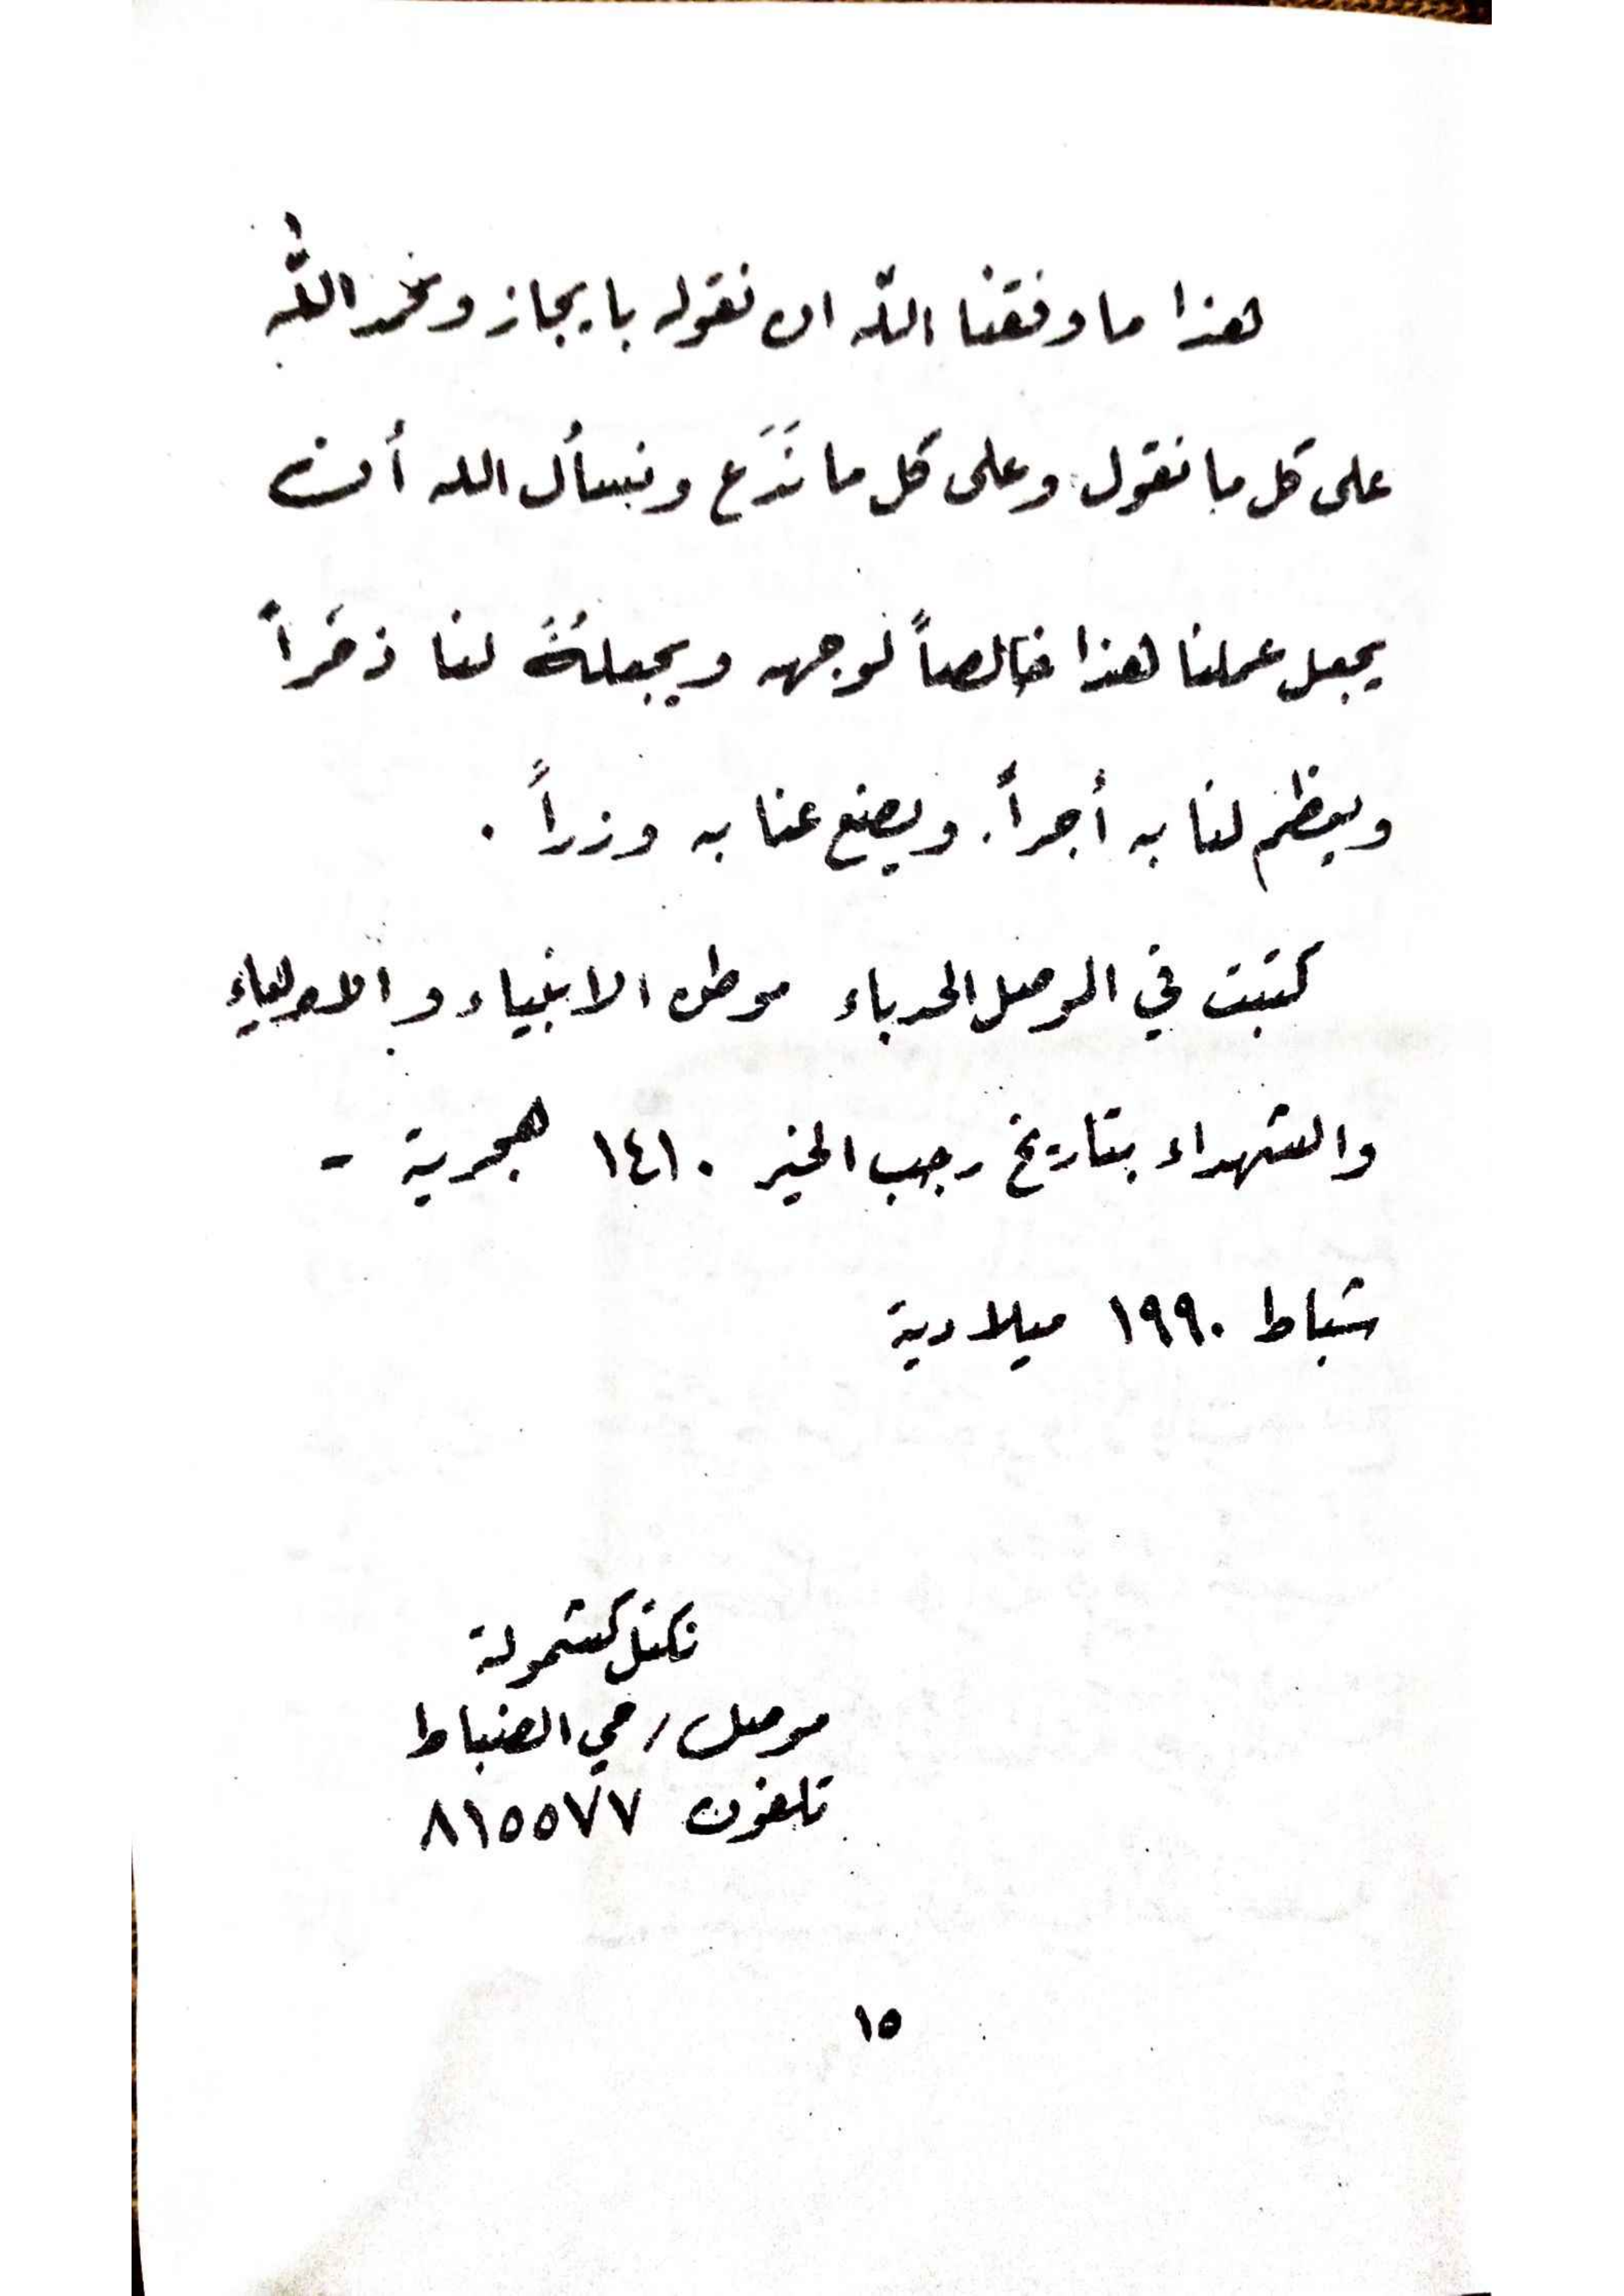 هذا ما وفقنا الله ان نقوله بايجاز ونحمد الله
على كل ما نقول وعلى كل ما نَدَع ونسأل الله أن
يجعل عملنا هذا خالصاً لوجهه ويجعلهُ لنا ذخراً
ويعظم لنا به أجراً. ويضع عنا به وزراً .
كتبت في الموصل الحدباء موطن الانبياء والاولياء
والشهداء بتاريخ رجب الخير ١٤١٠ هجرية -
شباط ١٩٩٠ ميلادية
نكتل كشمولة
موصل / حي الضباط
تلفون ٨١٥٥٧٧
١٥